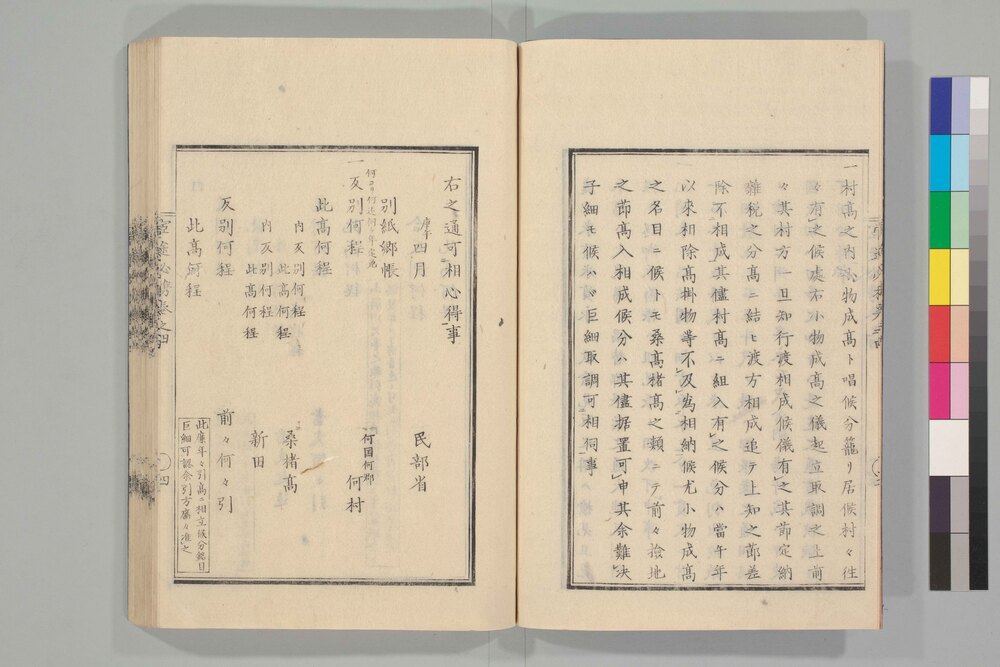 一村高之内小物成高ト唱候分籠リ居候村々往
々有之候處右小物成高之儀起立取調之上前
々其村方一旦知行渡相成候儀有之其節定納
雜税之分高ニ結ヒ渡方相成追テ上知之節差
除不相成其儘村高ニ組入有之候分ハ當午年
以來相除高掛物等不及為相納候尤小物成高
之名目ニ候トモ桑高楮高之類ニテ前々撿地
之節高入相成候分ハ其儘据置可申其余難決
子細モ候ハヽ巨細取調可相伺事
右之通可相心得事
庚午四月　民部省
別紙郷帳
何ヨリ何迄何ケ年定免
一反別何程　何国何郡　何村
此高何程
内反別何程　桑楮高
此高何程
内反別何程　新田
此高何程
反別何程　前々何々引
此高何程
此廉年々引高ニ相立候分銘目
巨細可認余引方廉々准之